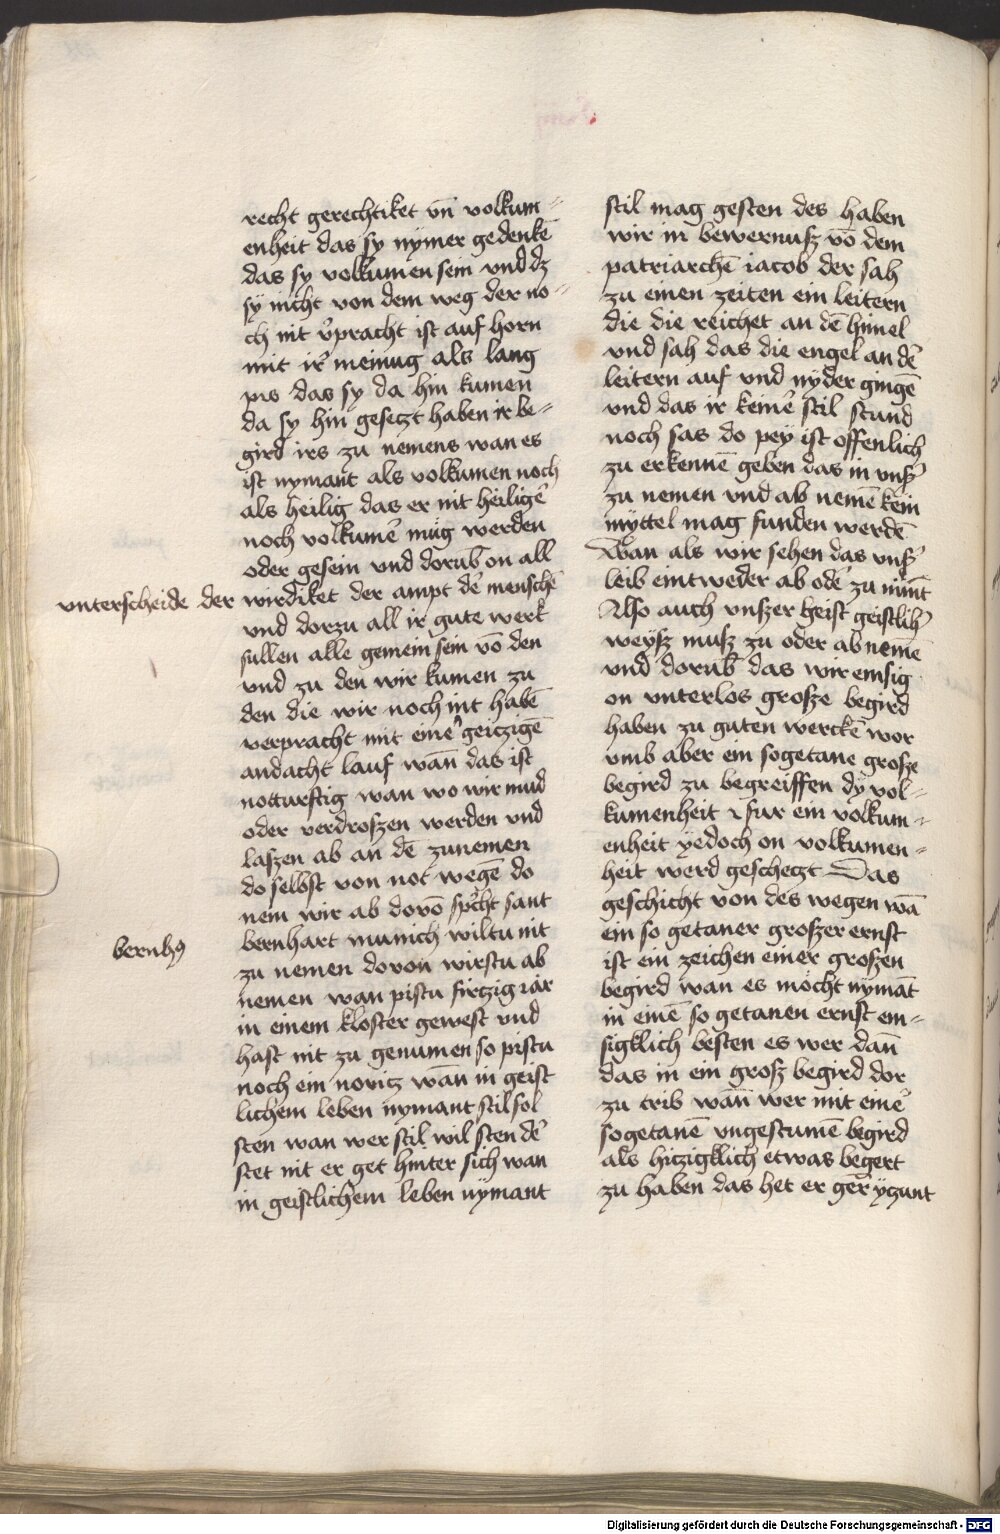 recht gerechtiket vn̄ volkum⸗
enheit das sy nymer gedenkē
das sy volkumen sein vnd dz
sy nicht von dem weg der no⸗
ch nit v̓pracht ist auf horn
mit ir̓ meinug als lang
pis das sy da hin kumen
da sy hin gesetzt haben ir be⸗
gird irs zu nemens wan es
ist nymant als volkumen noch
als heilig das er nit heiligē
noch volkumē mug werden
oder gesein vnd dorub̄ on all
unterscheide der wirdiket der ampt dē menschē
vnd dorzu all ir gute werk
sullen alle gemein sein vō den
vnd zu den wir kumen zu
den die wir noch nit habē
verpracht mit einē geitzigē
andacht lauf wān das ist
notturftig wan wo wir mud
oder verdroszen werden vnd
laszen ab an dē zunemen
do selbst von not wegē do
nem wir ab dovō sp̄cht sant
bernhꝰ
bernhart munich wiltu nit
zu nemen dovon wirstu ab
nemen wan pistu firtzig iar
in einem kloster gewest vnd
hast nit zu genumen so pistu
noch ein novitz wān in geist
lichem leben nymant stil sol
sten wan wer stil wil sten dē
stet nit er get hinter sich wan
in geistlichem leben nymant
stil mag gesten des haben
wir in bewernusz vō dem
patriarchē iacob der sah
zu einen zeiten ein leitern
die die reichet an dē himel
vnd sah das die engel an dē
leitern auf vnd nyder gingē
vnd das ir keinē stil stund
noch sas do pey ist offenlich
zu erkennē geben das in vnsz̓
zu nemen vnd ab nemē kein
myttel mag funden werdē
Wan als wir sehen das vnsz̓
leib eintweder ab odē zu nimt
Also auch vnszer heist geistlih̓
weysz musz zu oder ab nemē
vnd dorub̄ das wir emsig
on vnterlos grosze begird
haben zu guten werckē wor
vmb aber ein sogetane grosze
begird zu begreiffen dy vol⸗
kumenheit fur ein volkum⸗
enheit yedoch on volkumen⸗
heit werd geschetzt Das
geschicht von des wegen wā
ein so getaner groszer ernst
ist ein zeichen einer groszen
begird wan es mocht nymāt
in einē so getanen ernst em⸗
sigklich besten es wer dan̄
das in ein grosz begird dor
zu trib wan̄ wer mit einē
sogetanē vngestumē begird
als hitzigklich etwas begert
zu haben das het er gēr yczunt
Digitalisierung gefördert durch die Deutsche Forschungsgemeinschaft - DFG